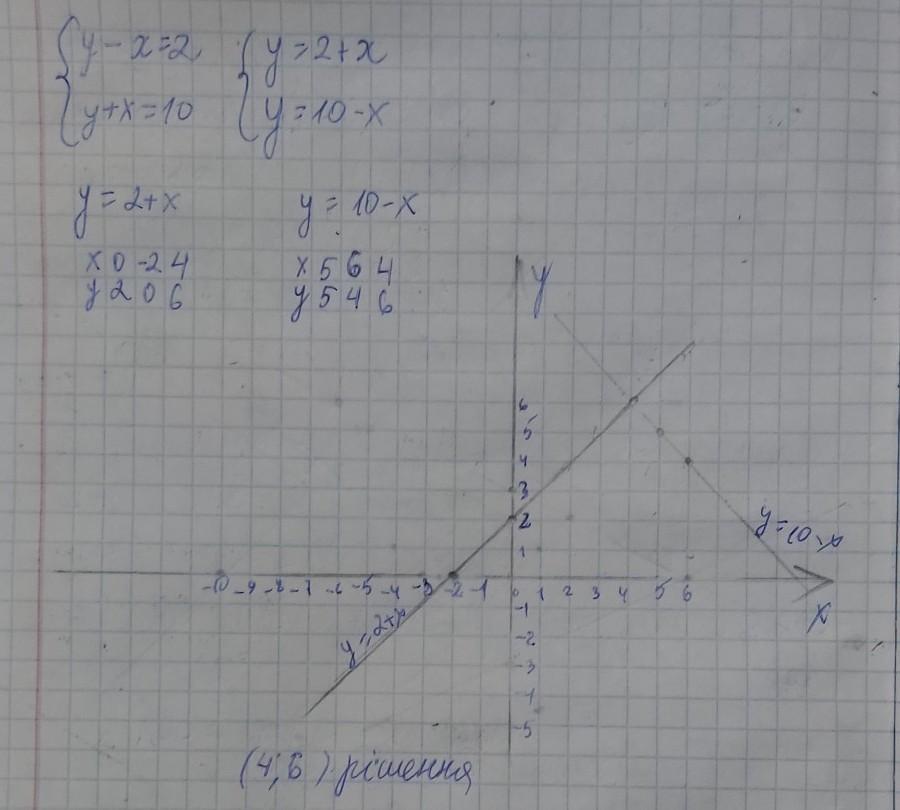 {y-x=2 {y=2+x
{y+x=10 {y=10-x
y=2+x y=10-x
x 0 -2 4 x 5 6 4
y 2 0 6 y 5 4 6
y
6
5
4
3
2
1
-10 -9 -8 -7 -6 -5 -4 -3 -2 -1 0 1 2 3 4 5 6
x
-1
-2
-3
-4
-5
y=10-x
y=2+x
(4;6) рішення